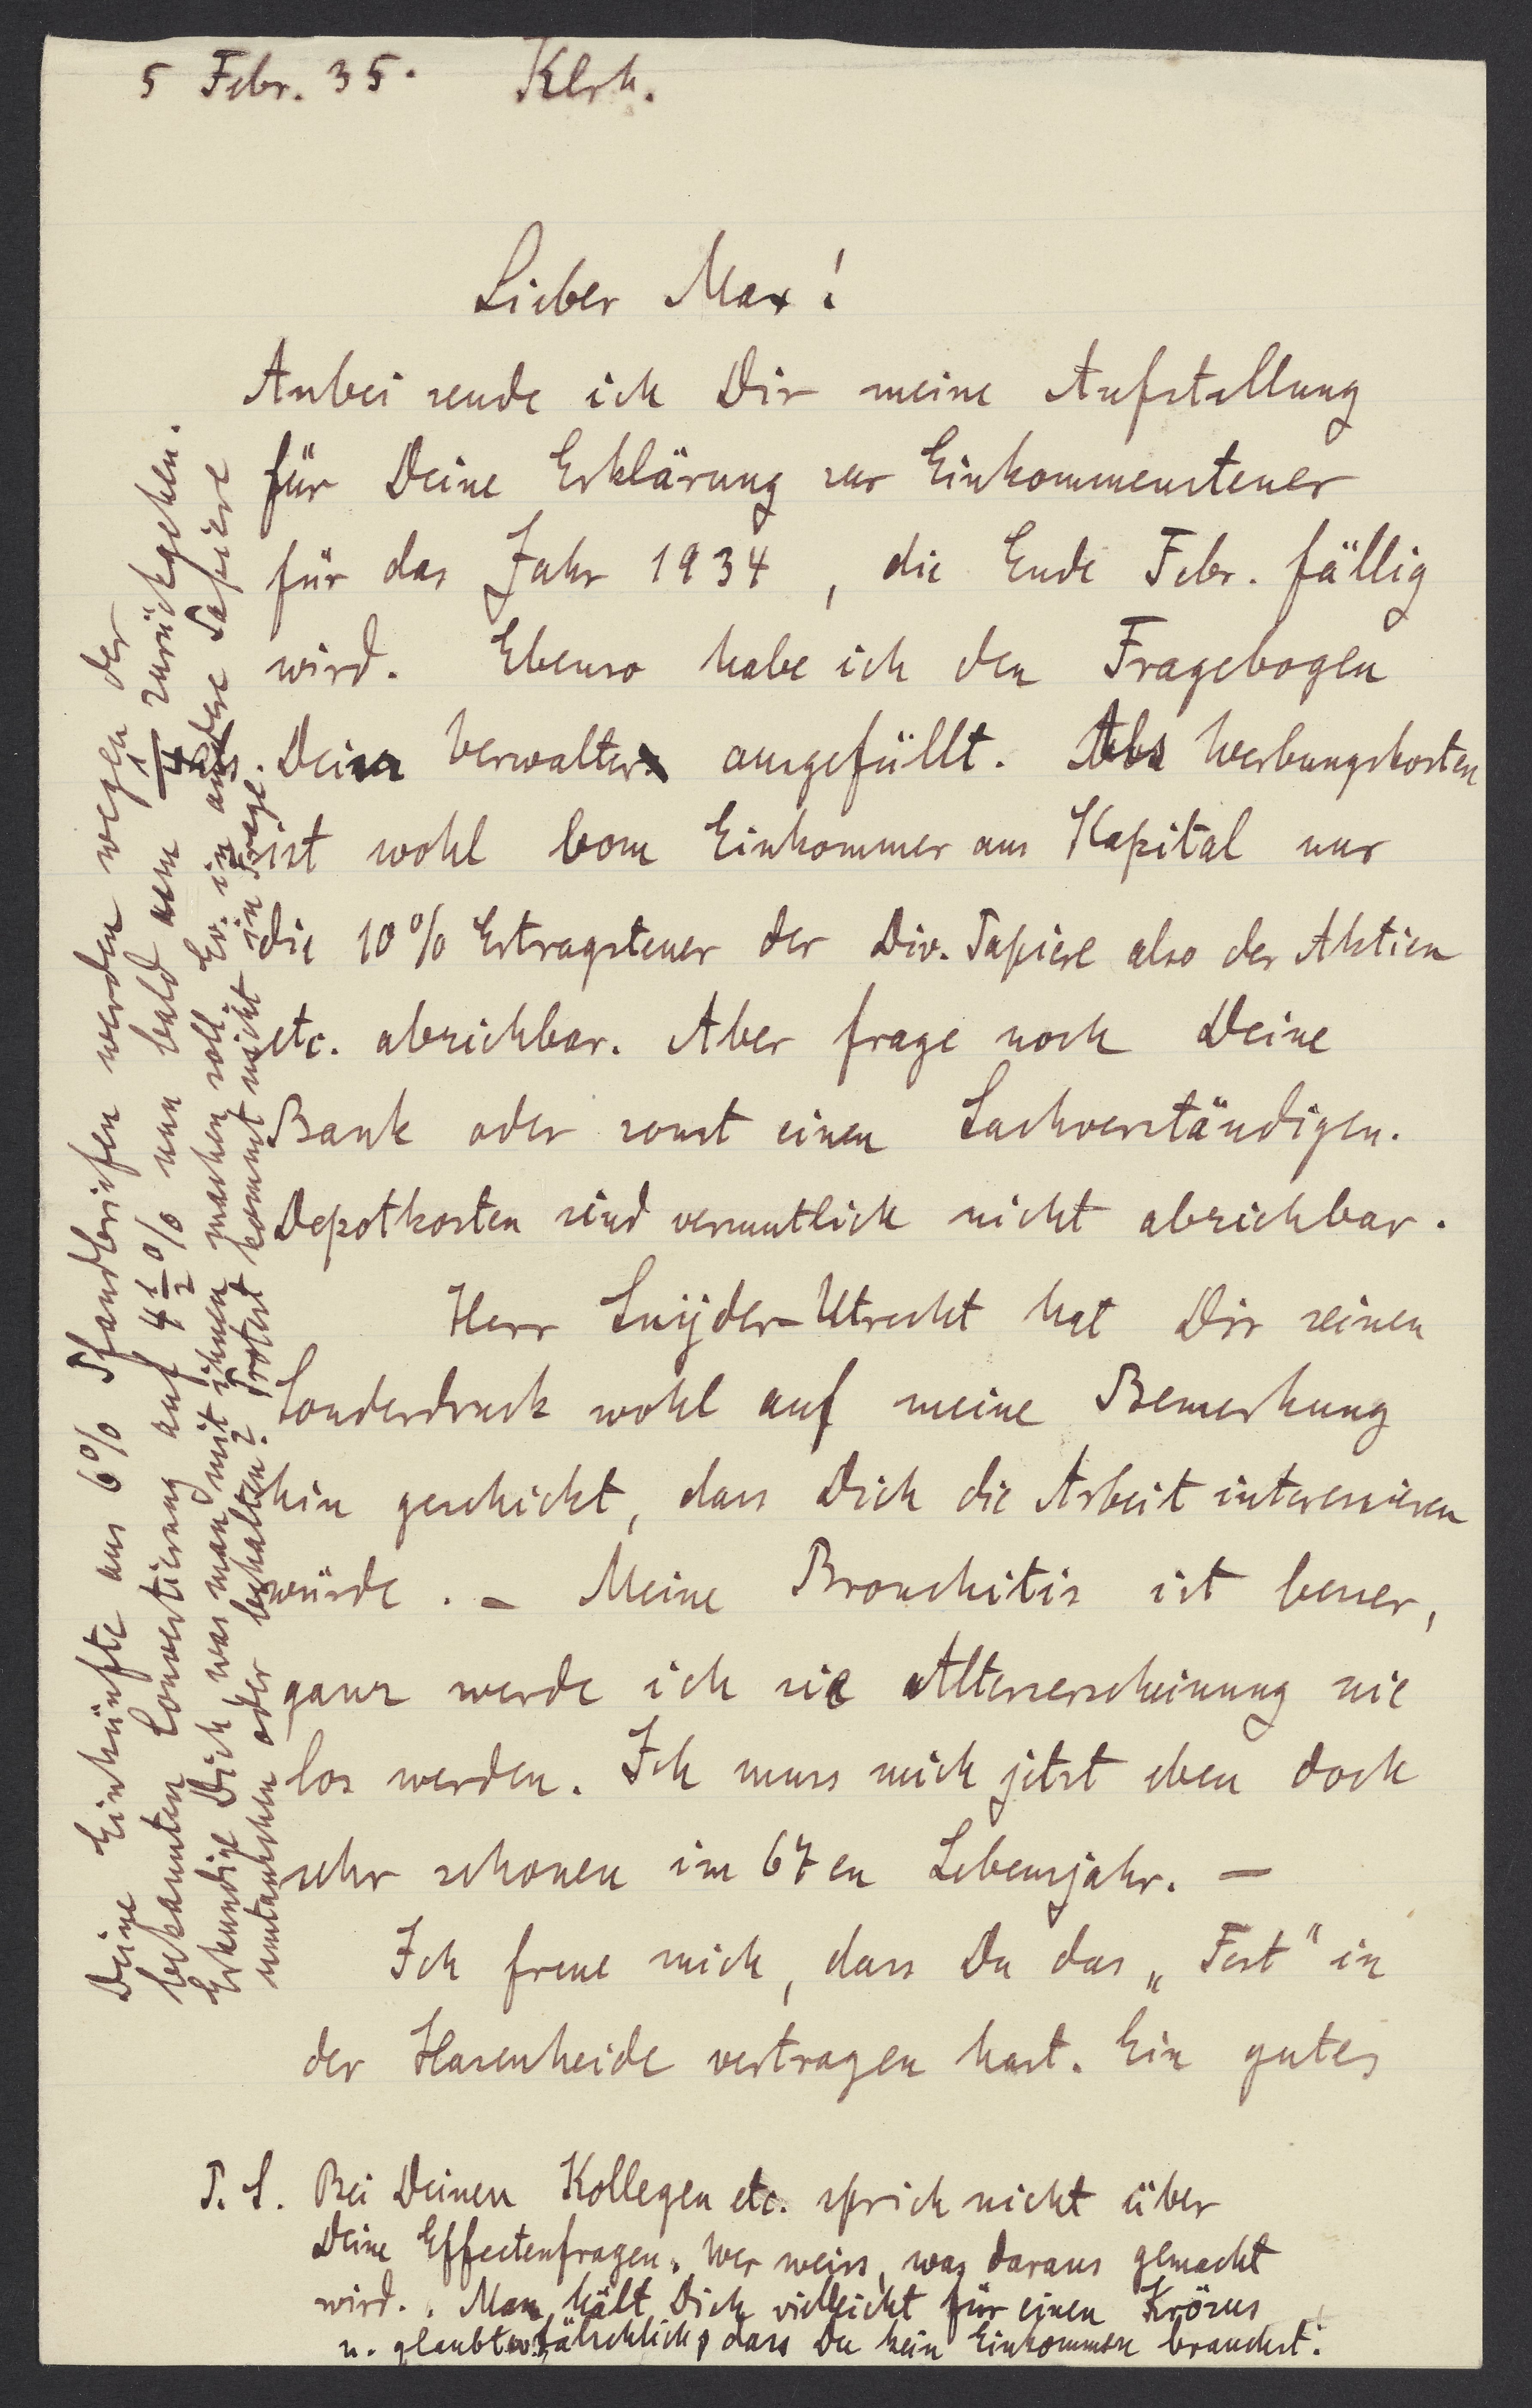 5 Febr. 35. Klrh.
Lieber Max!
Anbei sende ich Dir meine Aufstellung
für Deine Erklärung zur Einkommensteuer
für das Jahr 1934, die Ende Febr. fällig
wird. Ebenso habe ich den Fragebogen
Deiner Verwalter ausgefüllt. Als Werbungskosten
ist wohl vom Einkommen aus Kapital nur
die 10% Ertragsteuer der Div. Papiere also der Aktien
etc. abziehbar. Aber frage noch Deine
Bank oder sonst einen Sachverständigen.
Depotkosten sind vermutlich nicht abziehbar.
Herr Snijder-Utrecht hat Dir seinen
Sonderdruck wohl auf meine Bemerkung
hin geschickt, dass Dich die Arbeit interessieren
würde. – Meine Bronchitis ist besser,
ganz werde ich sie Alterserscheinung nie
los werden. Ich muss mich jetzt eben doch
sehr schonen im 67en Lebensjahr. –
Ich freue mich, dass Du das „Fest" in
der Hasenheide vertragen hast. Ein gutes
P.S. Bei Deinen Kollegen etc. sprich nicht über
Deine Effectenfragen. Wer weiss, was daraus gemacht
wird. Man hält Dich vielleicht für einen Krösus
u. glaubt fälschlich, dass Du kein Einkommen brauchst.
Deine Einkünfte aus 6% Pfandbriefen werden wegen der
bekannten Convertierung auf 4 1/2 % nun bald um 1/4 zurückgehen.
Erkundige Dich was man mit ihnen machen soll. Ev. in andere Papiere
umtauschen oder behalten? Protest kommt nicht in Frage.